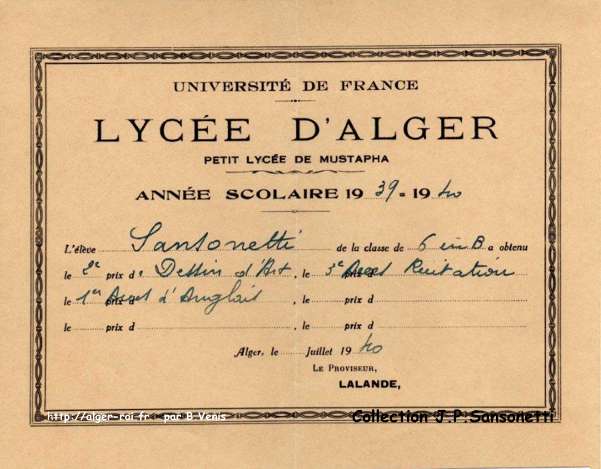 UNIVERSITÉ DE FRANCE
LYCÉE D'ALGER
PETIT LYCÉE DE MUSTAPHA
ANNÉE SCOLAIRE 1939=1940
L'élève Sansonetti de la classe de 6ième B a obtenu
le 2e prix de Dessin d'Art, le 3e Acces Récitation
le 1er Acces d'Anglais, le prix d
le prix d, le prix d
Alger, le Juillet 1940
LE PROVISEUR,
LALANDE,
http://alger-roi.fr par B.Venis
Collection J.P.Sansonetti